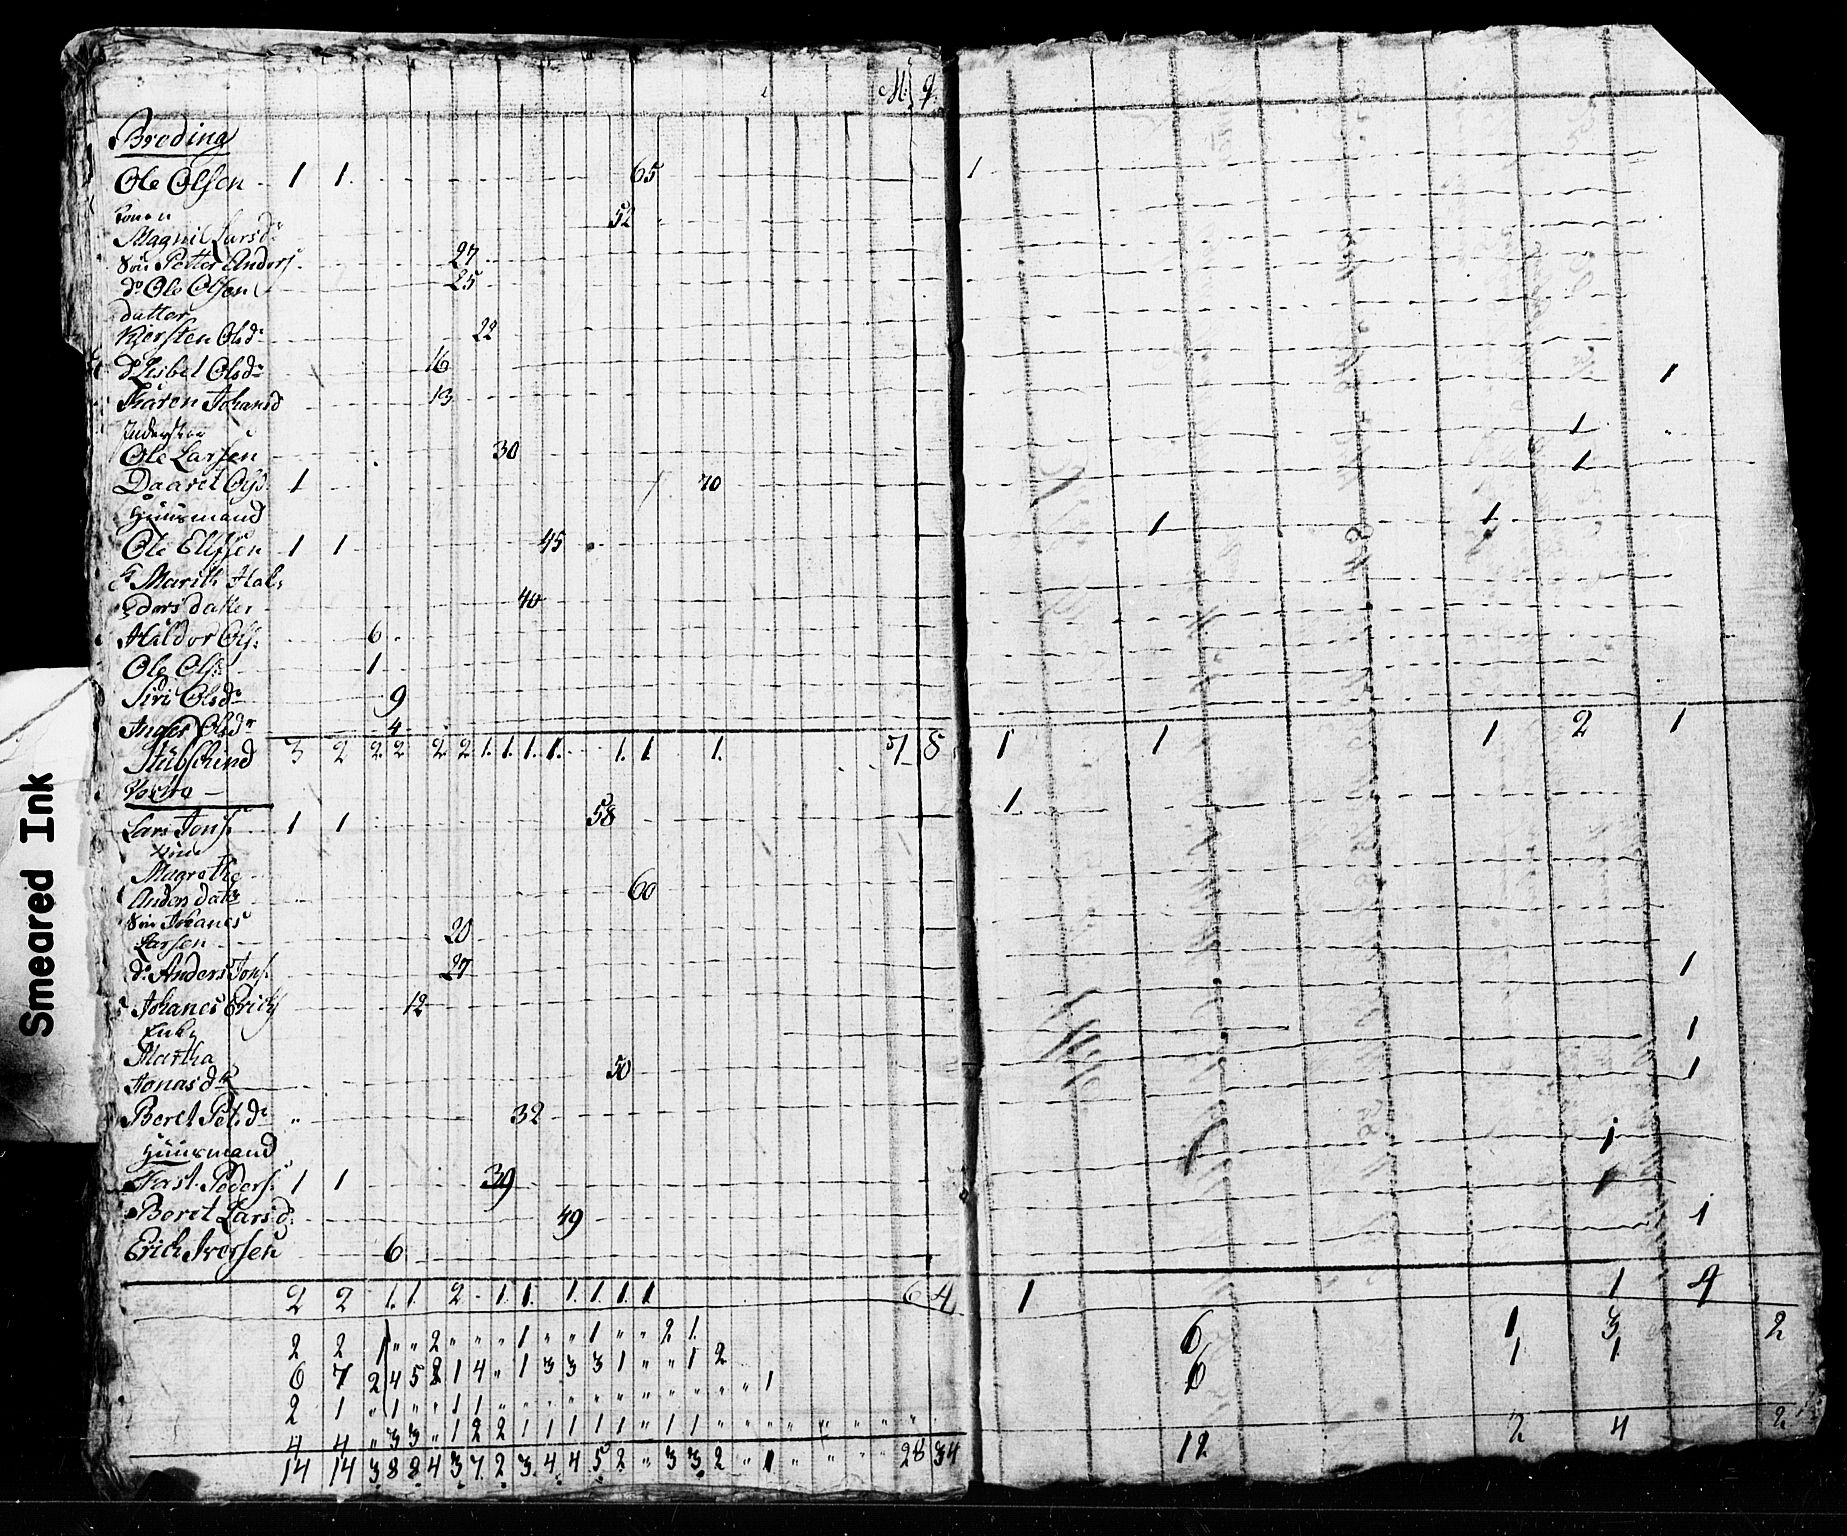 M. q.
Broding
Ole Olsen 1 1 65 1
konen 52
Magnil Larsdr
Søn Petter Anders 27
do Ole Olsen 25
datter
Kjersten Olsdr 22
do Lisbet Olsdr 16 1
Karen Johansd 13
1
Ole Larsen 30 1
Daaret Olsd. 1 70
Huusmand 1 1
Ole Ellefsen 1 1 45
Marith Hal-
dorsdatter 40
Haldor Ols. 6
Ole Ols. 1
Siri Olsdr 9
Inger Olsdr 4
3 2 2 2 2 2 1. 1. 1. 1. 1. 1 1. 7 8 1 1 1 2 1
1
Lars Jons. 1 1 58
Magrethe
Anders datr 60
Søn Johanes
Larsen 20
do Anders Jons. 27 1
Johanes Erichs 12
Enke 1
Martha
Jonasdr 50 1
Beret Petsdr 32
Huusmand 1
Fast. Peders. 1 1 39
Beret Larsd. 49 1
Erich Iversen 6
2 2 1. 1. 2 1. 1. 1. 1. 1. 1 6 4 1 1 4
2 2 1 " " 2 " " " 1 " " 1 " " 2 1. 6 1 3 2
6 7 2 4 5 2 1 4 " 1 3 3 3 1 " " 1 2 6 1 1
2 1 " 1 " " 1 1 " " " " " " " " " " " 1
4 4 " 3 3 " 1 2 2 1 1 1 1 1 " 1 1 " " " " " " "
14 14 3 8 8 4 3 7 2 3 4 4 5 2 " 3 3 2 " 1 " " " " 28 34 12 2 4 2
Smeared Ink